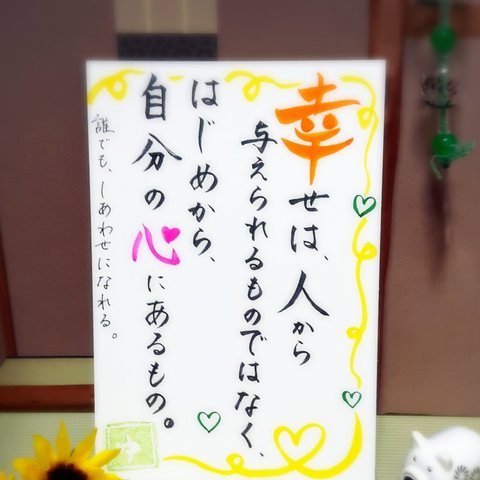 幸せは、人から
与えられるものではなく、
はじめから、
自分の心にあるもの。
誰でも、しあわせになれる。